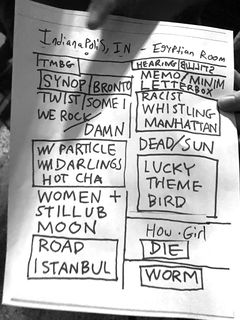 IndianaPoliS, IN - Egyptian Room
TMBG
SYNOP/BRONTO
TWIST/SOME 1
WE ROCK/
DAMN
W/ PARTICLE
W/ DARLINGS
HOT CHA
WOMEN +
STILLUB
MOON
ROAD
ISTANBUL
HEARING
MEMO/MINIM
LETTERBOX
RACIST
WHISTLING
MANHATTAN
DEAD/SUN
LUCKY
THEME
BIRD
HOW · Girl
DIE
WORM